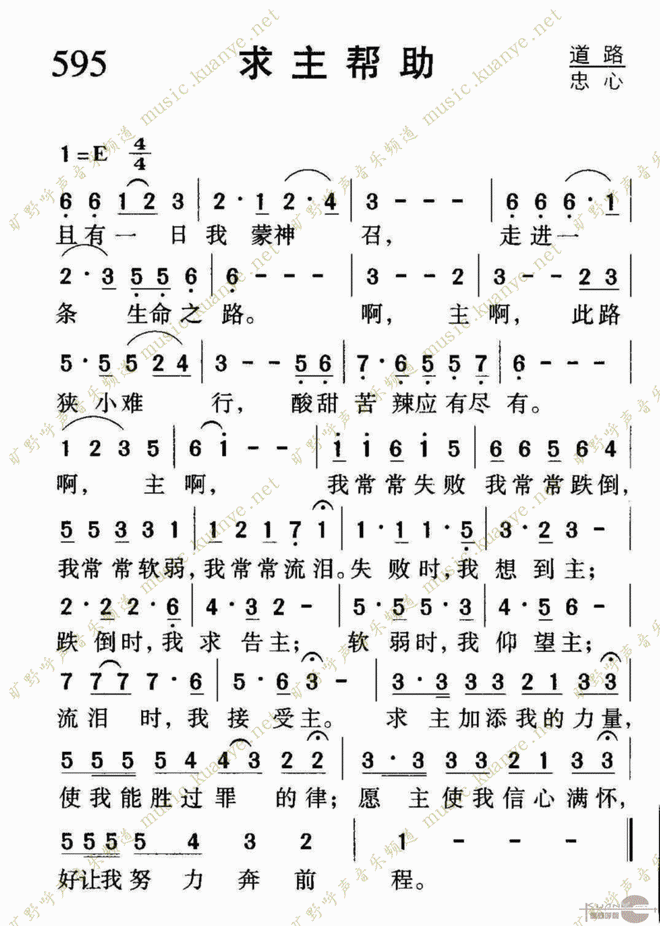 595 求主帮助 道路
忠心
1=E 4/4
6 6 1 2 3 | 2·1 2·4 | 3 - - - | 6 6 6·1 |
且有一 日我 蒙神 召， 走进一
2·3 5 5 6 | 6 - - - | 3 - - 2 | 3 - - 2 3 |
条 生命之 路。 啊， 主啊， 此路
5·5 5 2 4 | 3 - - 5 6 | 7·6 5 5 7 | 6 - - - |
狭小难 行， 酸甜苦辣应有尽有。
1 2 3 5 | 6 i - - | i i 6 i 5 | 6 6 5 6 4 |
啊， 主啊， 我常常失败 我常常跌倒，
5 5 3 3 1 | 2 1 2 1 7 1 | 1·1 1·5 | 3·2 3 - |
我常常软弱，我常常流泪。失败时，我想到主；
2·2 2·6 | 4·3 2 - | 5·5 5·3 | 4·5 6 - |
跌倒时，我求告主； 软弱时，我仰望主；
7 7 7 7·6 | 5·6 3 - | 3·3 3 3 2 1 3 3 |
流泪 时，我接受主。 求主加添我的力量，
5 5 5 5 4 4 3 2 2 1 | 3·3 3 3 2 1 3 3 |
使我能胜过罪 的律；愿主使我信心满怀，
5 5 5 5 4 3 2 | 1 - - - ‖
好让我努力奔前 程。
旷野呼声音乐频道 music.kuanye.net